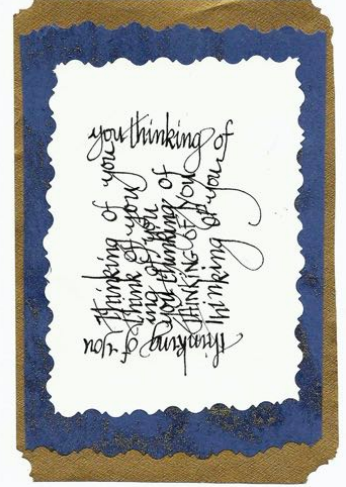 you thinking of
thinking of you
think of you
ing of you
you thinking of
THINKING OF YOU
thinking of you
thinking of you